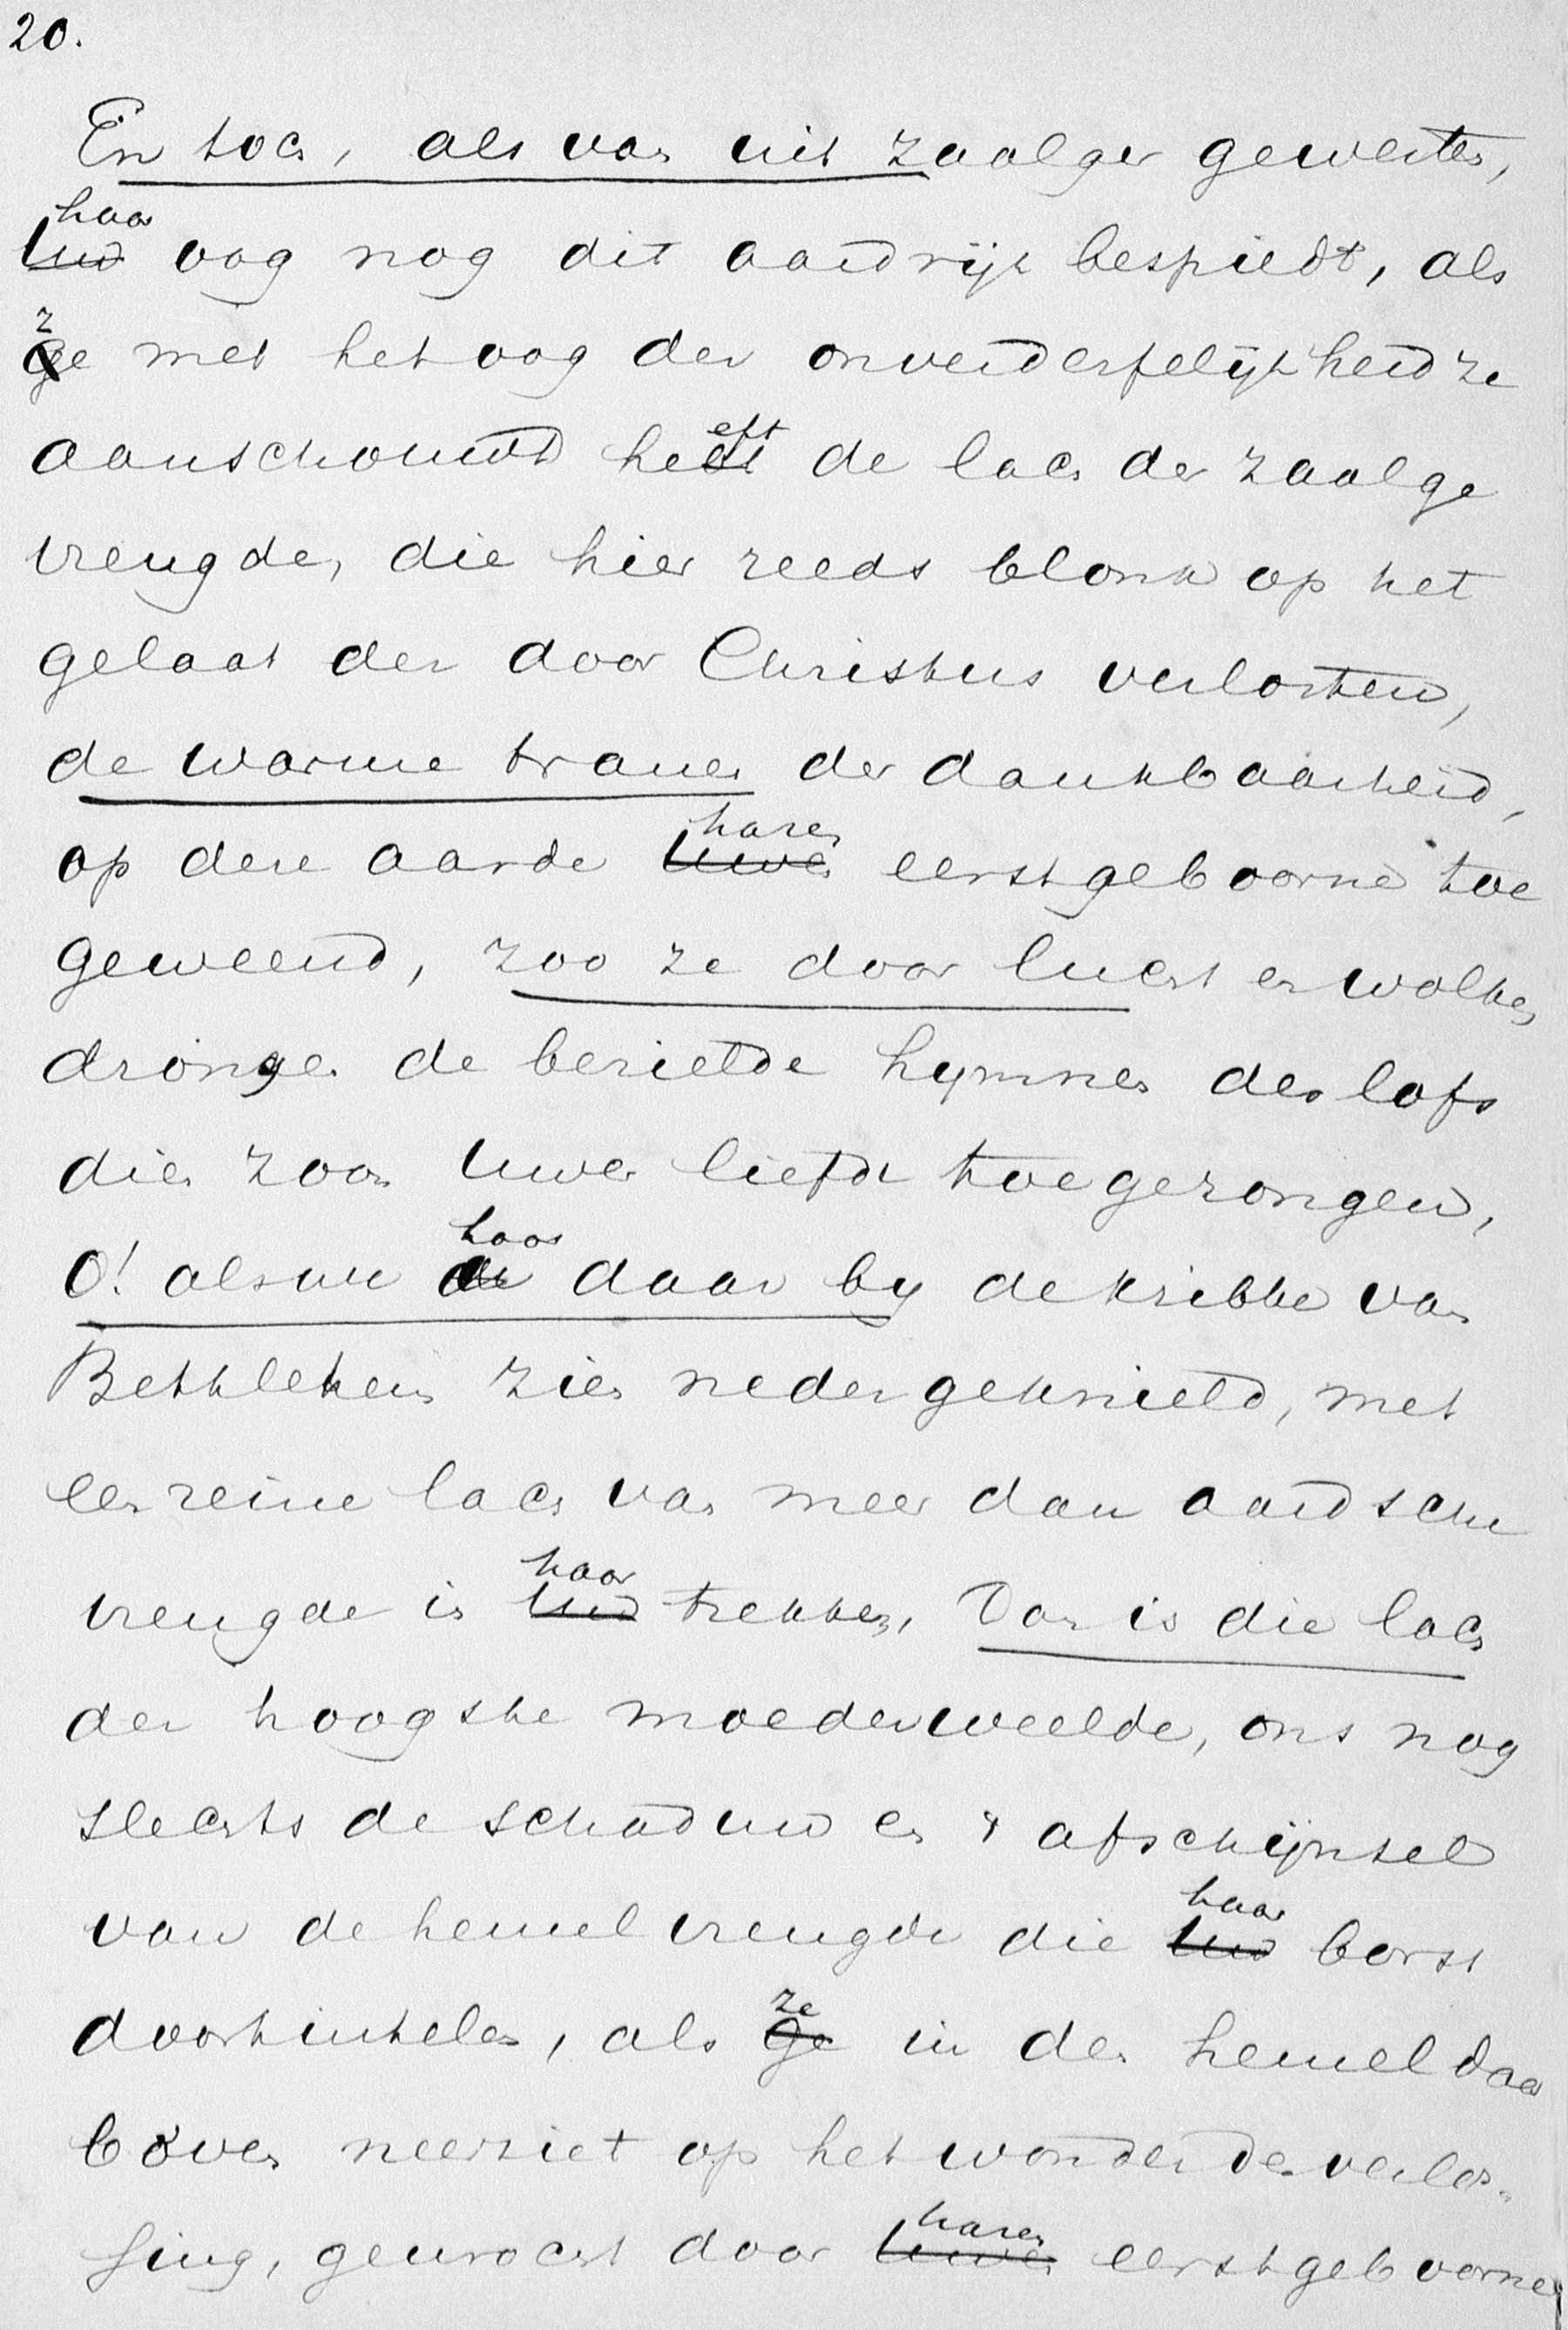 20.
En toch, als van uit zaalger gewesten,
haar
Uw oog nog dit aardrijk bespiedt, als
z
ge met het oog der onverderfelijkheid ze
aanschouwd hebt eft de lach der zaalge
vreugde, die hier reeds blonk op het
gelaat der door Christus verlosten,
de warme tranen der dankbaarheid,
op deze aarde Uwen haren eerstgeboorne toe
geweend, zoo ze door lucht en wolken
drongen de bezielde hymnen des lofs
dien zoon Uwer liefde toegezongen,
O! als we haar daar by de kribbe van
Bethlehem zien nedergeknield, met
een reine lach van meer dan aardsche
vreugde in Uw haar trekken, Dan is die lach
der hoogste moederweelde, ons nog
slechts de schaduw en 't afschijnsel
van de hemelvreugde die Uw haar borst
doortintelen, als ge ze in den hemel daar
boven neerziet op het wonder der verlos-
sing, gewrocht door Uwen haren eerstgeboornen